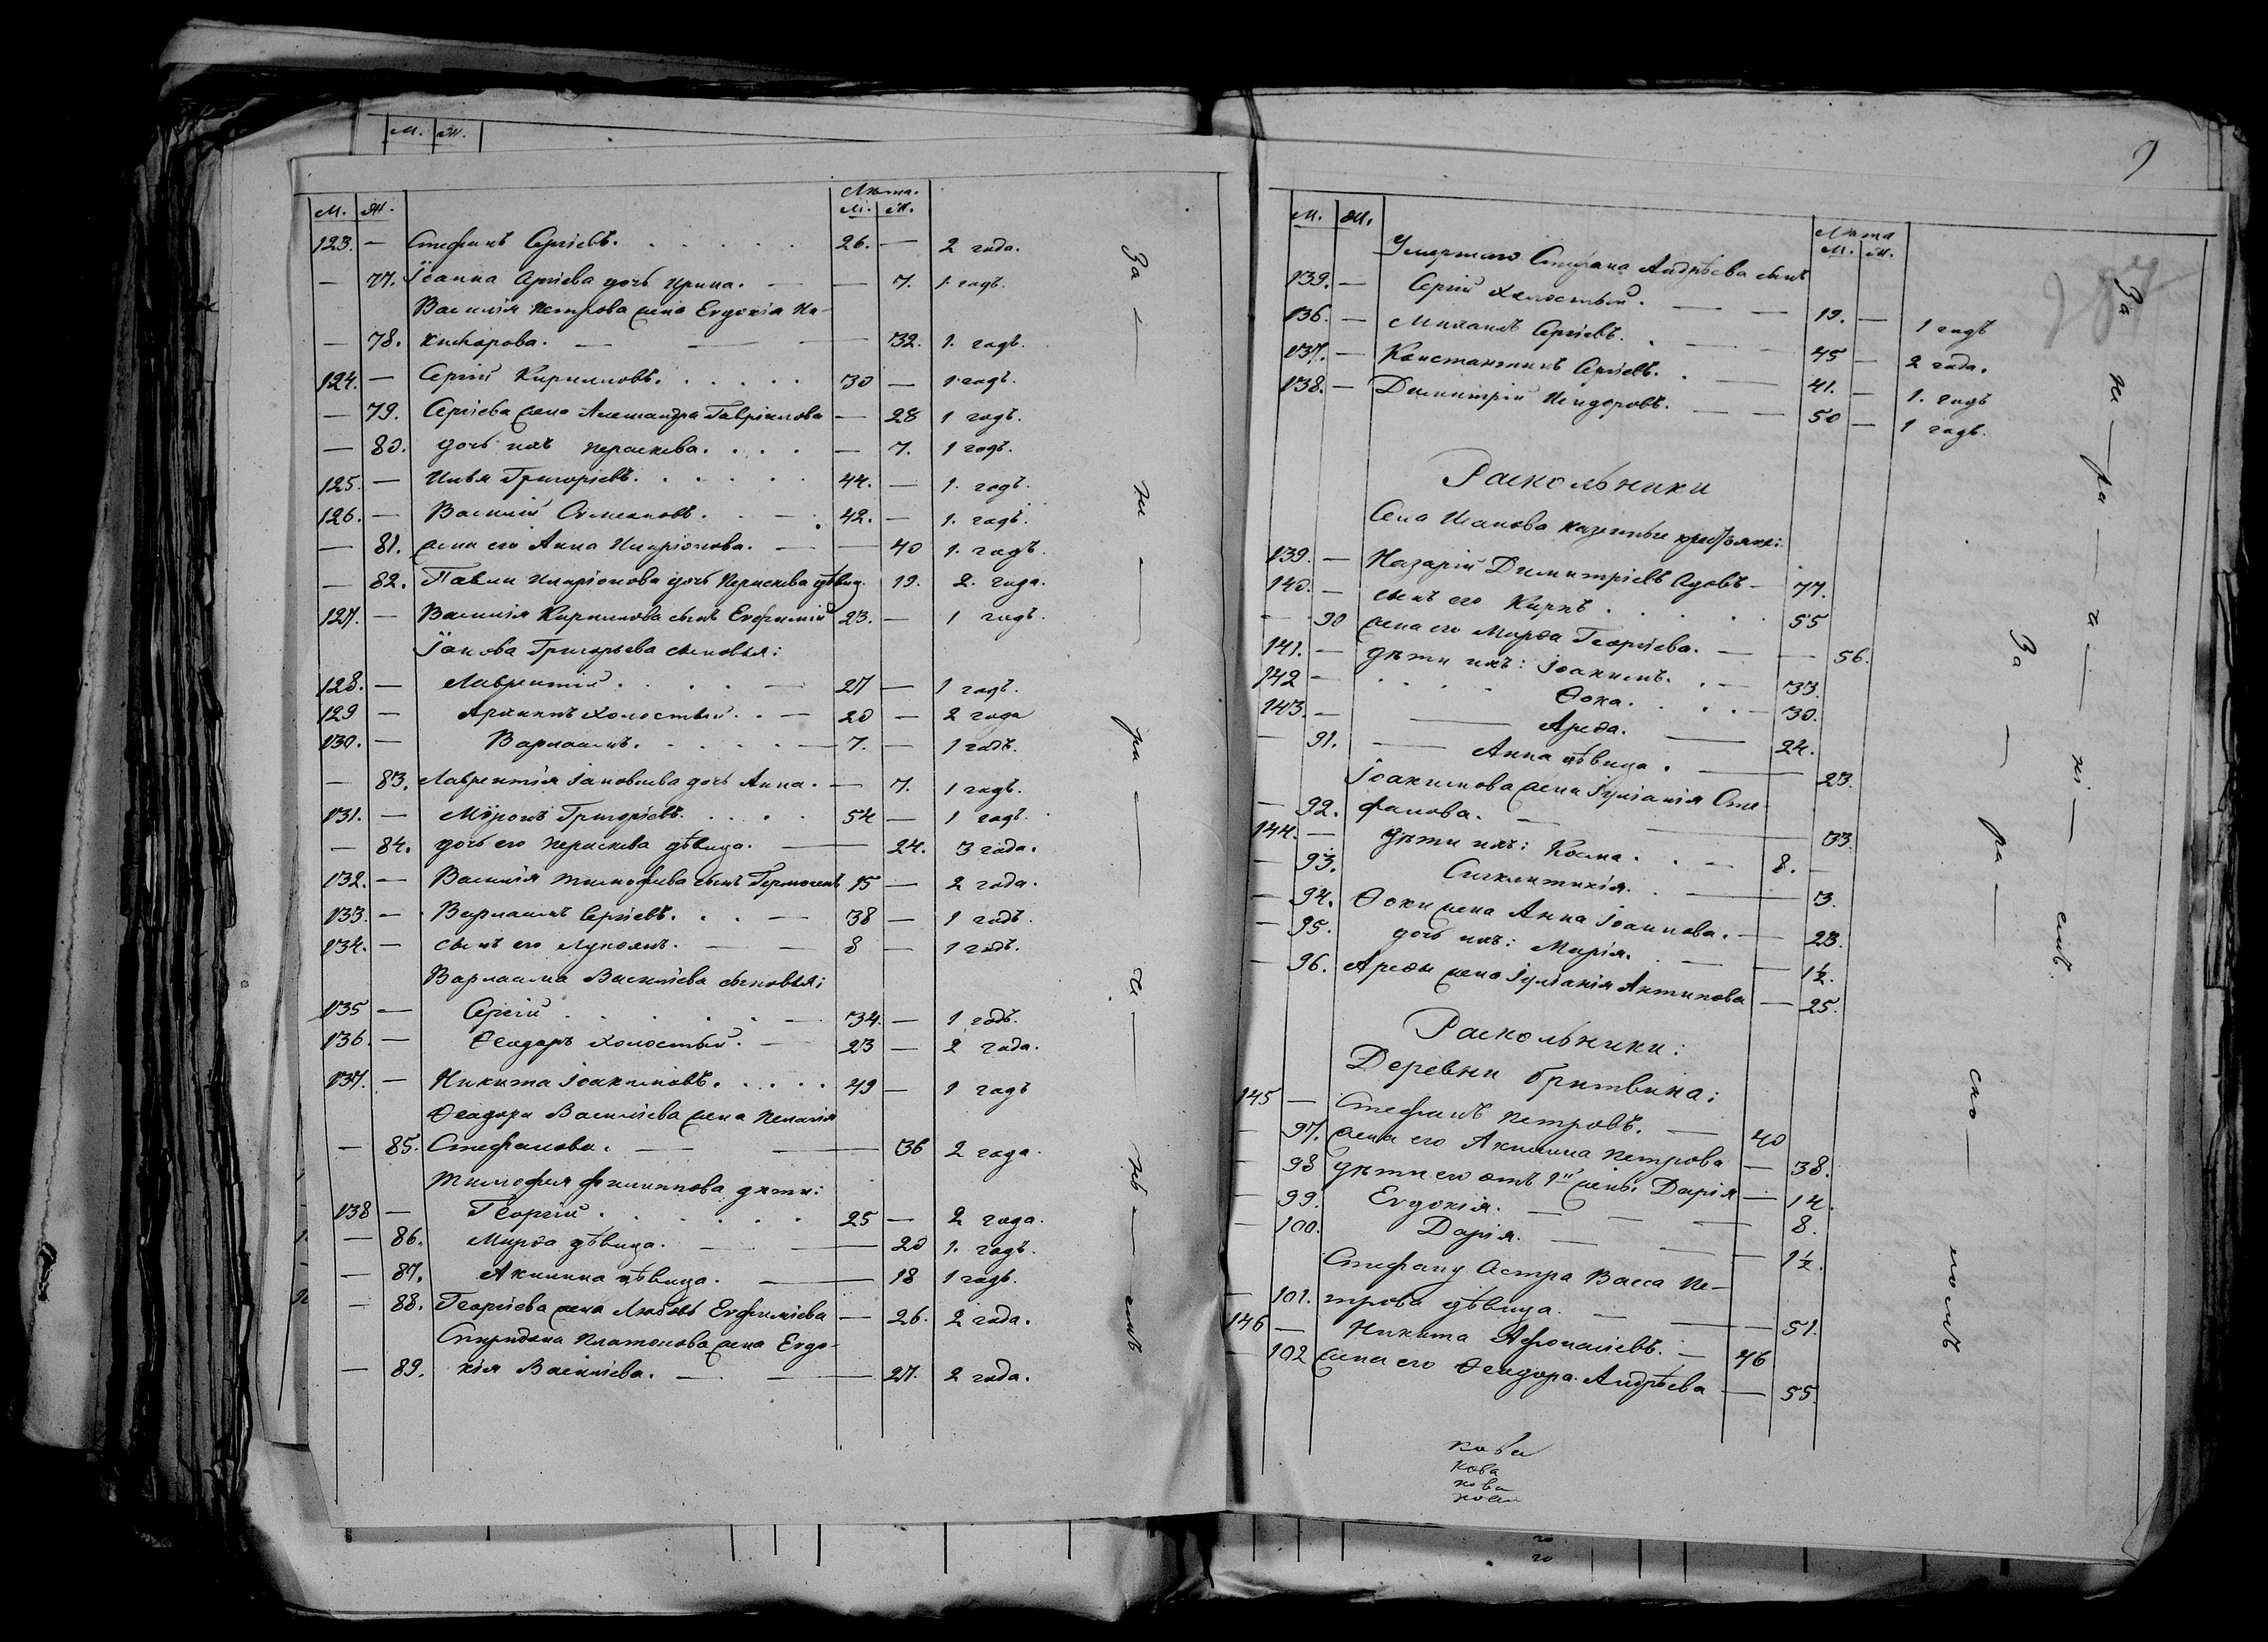 М. Ж.
Лѣта.
М. Ж. М. Ж.
123. — Стефанъ Сергіевъ. 26. — 2 года.
— 77. Іоанна Сергіева дочь Ирина. — 7. 1 годъ.
Василія Петрова жена Евдокія Ни-
— 78. кифорова. — 32. 1. годъ.
124. — Сергій Кирилловъ. 30 — 1 годъ.
— 79. Сергіева жена Александра Гавріилова — 28 1 годъ.
— 80. дочь ихъ Пераскева. — 7. 1 годъ.
125. — Илья Григорьевъ. 44. — 1. годъ.
126. — Василій 42. — 1. годъ.
— 81. жена его Анна Иларіонова. — 40 1. годъ.
— 82. Павла Иларіонова дочь Пераскева дѣвица. 19. 2. года.
127. — Василія Кириллова сынъ Евфимій 23. — 1 годъ.
Іакова Григорьева сыновья:
128. — Лаврентій. 27 — 1 годъ.
129 — холостый. 20 — 2 года
130. — Варлаамъ. 7. — 1 годъ.
— 83. Лаврентія Іаковлева дочь Анна. — 7. 1 годъ.
131. — Мѵронъ Григорьевъ. 54 — 1 годъ.
— 84. дочь его Пераскева дѣвица. — 24. 3 года.
132. — Василія Тимофеева сынъ Гермогенъ 15 — 2 года.
133. — Варлаамъ Сергіевъ. 38 — 1 годъ.
134. — сынъ его Лукіянъ. 8 — 1 годъ.
Варлаама Василіева сыновья:
135 — Сергій 34. — 1 годъ.
136. — Ѳеодоръ холостый. 23 — 2 года.
137. — Никита Іоакимовъ. 49 — 1 годъ
Ѳеодора Василіева жена Пелагія
— 85. Стефанова. — 36 2 года.
Тимофея Филиппова дѣти:
138 — Георгій. 25 — 2 года.
— 86. Марѳа дѣвица. — 20 1. годъ.
— 87. Акилина дѣвица. — 18 1 годъ.
— 88. Георгіева жена Любовь Евфиміева — 26. 2 года.
Спиридона Платонова жена Евдо-
— 89. кія Василіева. — 27. 2 года.
За — ни — ра — чи — нѣ — емъ
М. Ж.
Лѣта
М. Ж.
Умершаго Стефана Андрѣева сынъ
139. — Сергій холостый. — 19. — 1 годъ
136. — Михаилъ Сергіевъ. — 45 — 2 года.
137. — Константинъ Сергіевъ. — 41. — 1. годъ
138. — Димитрій Исидоровъ. — 50 — 1 годъ.
Раскольники
Села Исакова казенные крестьяне:
139. — Назарій Димитріевъ — 77.
140. — сынъ его Карпъ 55
— 90 жена его Марѳа Георгіева. — 56.
141. — дѣти ихъ: Іоакимъ. 33.
142 — Ѳока. 30.
143. — Ареѳа. 24.
— 91. Анна дѣвица. — 23.
Іоакимова жена Іуліанія Сте-
— 92. фанова. — 33.
144. — дѣти ихъ: Косма. 8. —
— 93. Сигклитикія. — 3.
— 94. Ѳоки жена Анна Іоаннова. — 23.
— 95. дочь ихъ: Марія. — 1½.
— 96. Ареѳы жена Іуліанія Антипова — 25.
Раскольники:
Деревни Бритвина:
145 — Стефанъ Петровъ. — 40
— 97. жена его Акилина Петрова — 38.
— 98 дѣти его отъ 1й жены Дарія — 14.
— 99. Евдокія. — 8.
— 100. Дарія. — 1½.
Стефану сестра Васса Пе-
— 101. трова дѣвица. — 51.
146 — Никита Афонасіевъ. — 46
— 102 жена его Ѳеодора Андрѣева — 55.
кова
кова
нова
За — ни — ра — чи — ні — емъ.
За — ра — ско — ломъ
го
го